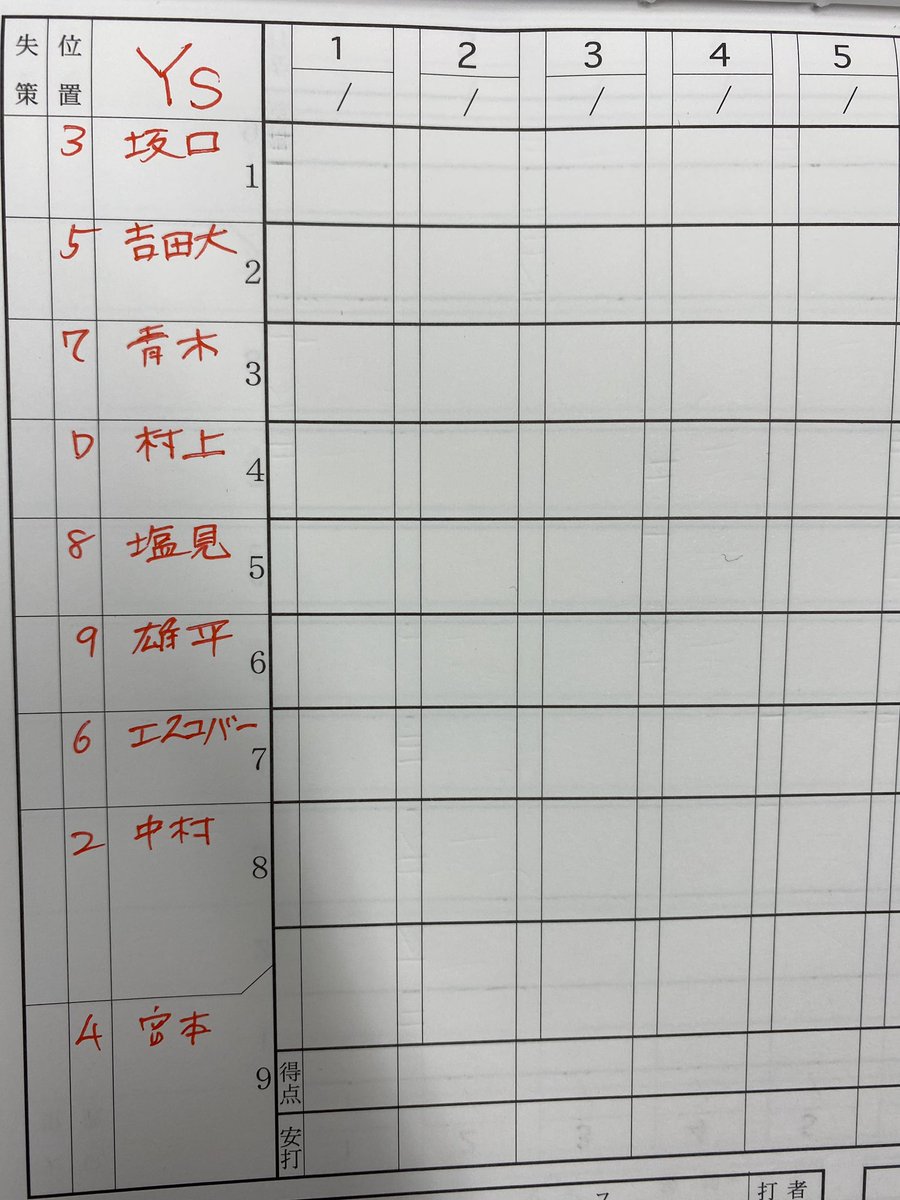 失策 位置 Ys 1 2 3 4 5
/ / / / /
3 坂口 1
5 吉田大 2
7 青木 3
D 村上 4
8 塩見 5
9 雄平 6
6 エスコバー 7
2 中村 8
4 宮本 9
得点
安打
打者